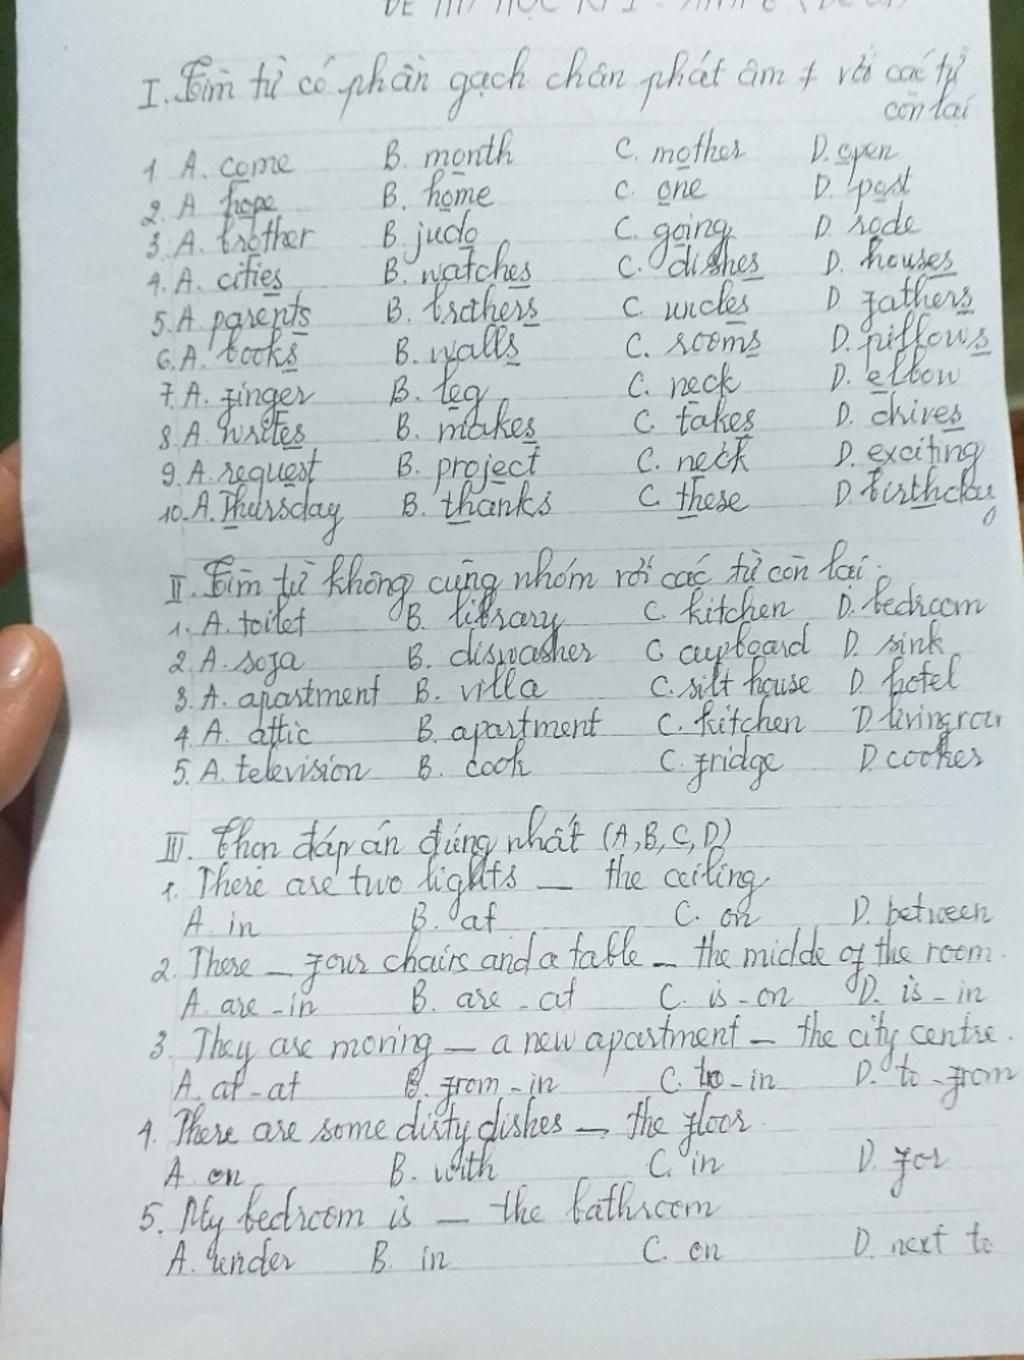 I. Tìm từ có phần gạch chân phát âm ≠ với các từ
còn lại
1 A. come B. month C. mother D. open
2. A hope B. home C. one D. post
3. A. brother B judo C. going D. rode
4. A. cities B. watches C. dishes D. houses
5. A parents B. brothers C uncles D fathers
6. A. books B. walls C. rooms D. pillows
7. A. finger B. leg C. neck D. elbow
8 A. writes B. makes C. takes D. drives
9. A. request B. project C. neck D. exciting
10. A. Thursday B. thanks C. these D. birthday
II. Tìm từ không cùng nhóm với các từ còn lại.
1. A. toilet B. library C. kitchen D. bedroom
2 A. sofa B. diswasher C cupboard D. sink
3. A. apartment B. villa C. silt house D hotel
4. A. attic B. apartment C. kitchen D livingroo
5. A. television B. cook C. fridge D. cooker
III. Chọn đáp án đúng nhất (A,B,C,D)
1. There are two lights _ the ceiling.
A. in B. at C. on D. between
2. There _ four chairs and a table _ the midde of the room.
A. are - in B. are - at C. is - on D. is - in
3. They are moving _ a new apartment _ the city centre.
A. at - at B. from - in C. to - in D. to - from
4. There are some dirty dishes _ the floor.
A. on B. with C. in D. for
5. My bedroom is _ the bathroom
A. under B. in C. on D. next to